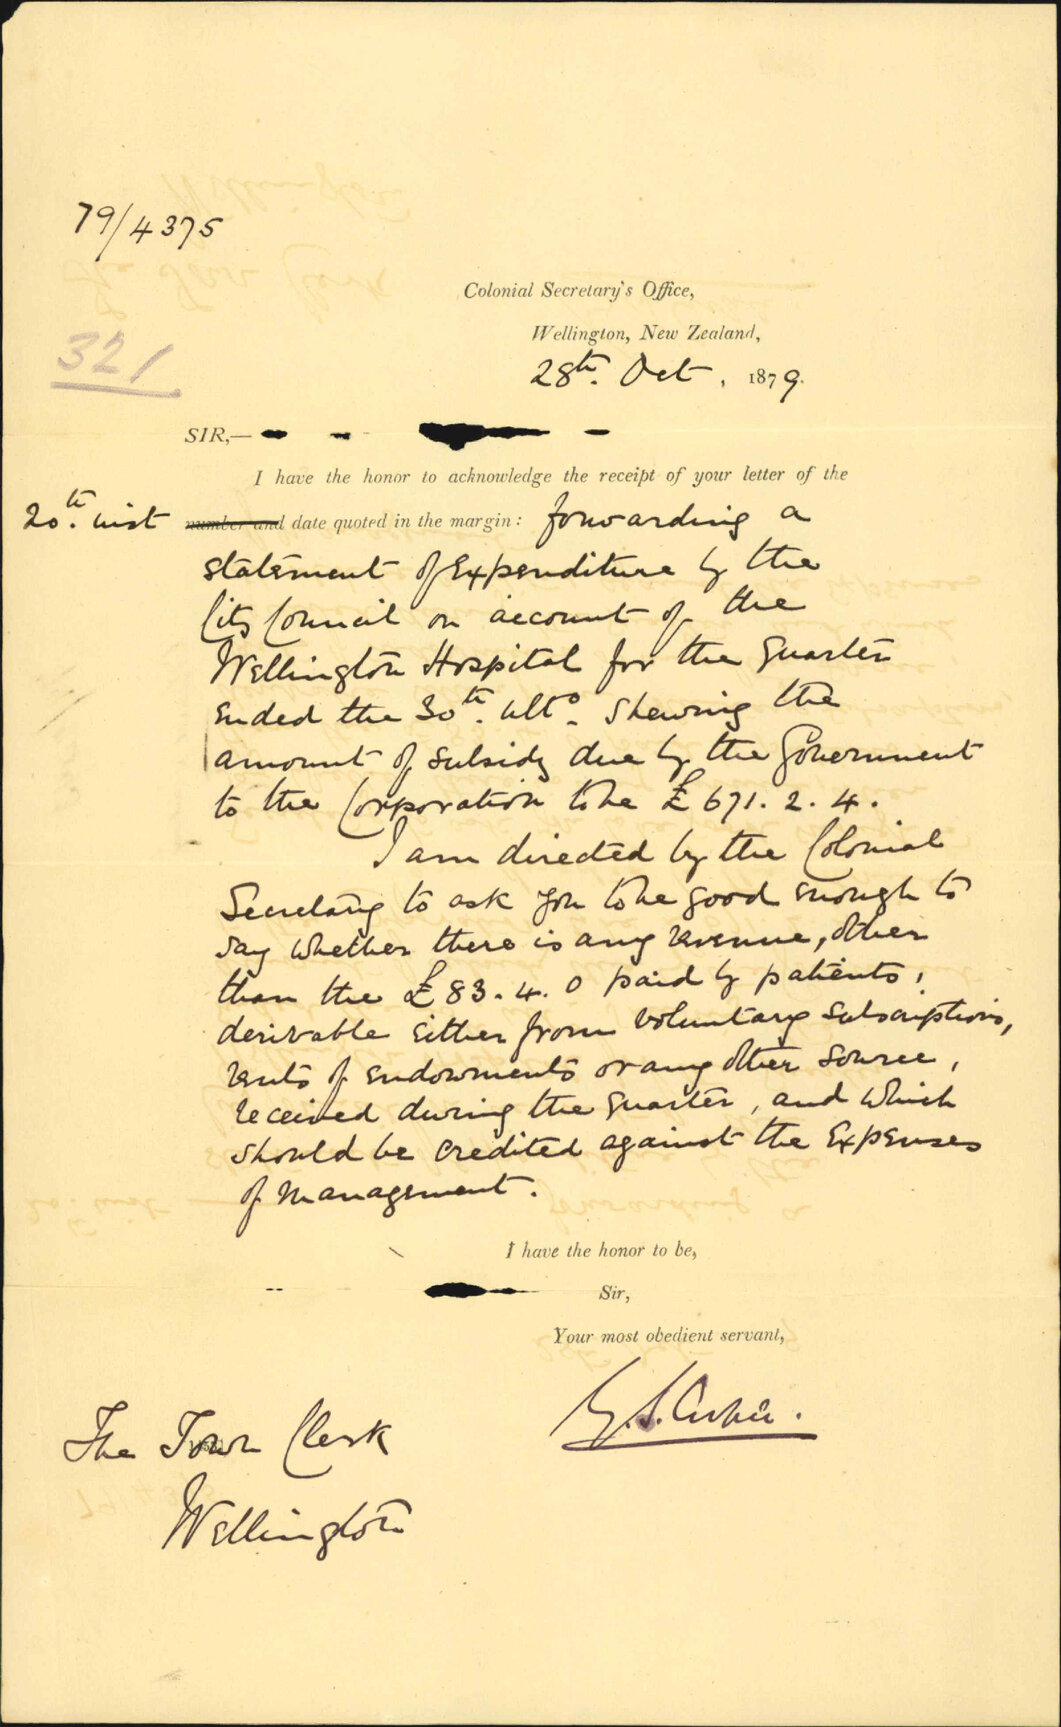 79/4375
321
Colonial Secretary's Office,
Wellington, New Zealand,
28th. Oct, 1879.
SIR,—
I have the honor to acknowledge the receipt of your letter of the
20th. inst number and date quoted in the margin: forwarding a
statement of Expenditure by the
City Council on account of the
Wellington Hospital for the Quarter
ended the 30th. ulto. shewing the
amount of subsidy due by the Government
to the Corporation to be £671.2.4.
I am directed by the Colonial
Secretary to ask you to be good enough to
say whether there is any revenue, other
than the £83.4.0 paid by patients,
derivable either from voluntary subscriptions,
rents of endowments or any other source,
received during the quarter, and which
should be credited against the Expenses
of management.
I have the honor to be,
Sir,
Your most obedient servant,
G.S. Cooper.
The Town Clerk
Wellington